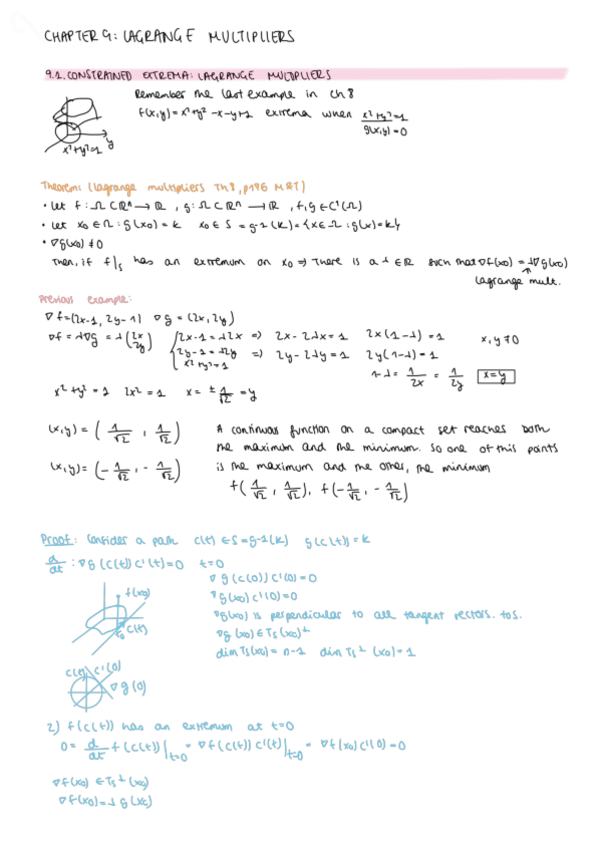 CHAPTER 9: LAGRANGE MULTIPLIERS
9.1. CONSTRAINED EXTREMA: LAGRANGE MULTIPLIERS
Remember the last example in ch 8
f(x,y) = x²+y² -x-y+1 extrema when x²+y²=1
g(x,y)=0
y
x²+y²=1
Theorem: (lagrange multipliers Th 8, p196 M&T)
• Let f: Ω ⊂ ℝⁿ → ℝ, g: Ω ⊂ ℝⁿ → ℝ, f,g ∈ C¹(Ω)
• Let x₀ ∈ Ω : g(x₀) = k x₀ ∈ S = g-1(k) = {x ∈ Ω : g(x)=k}
• ∇g(x₀) ≠ 0
Then, if f|s has an extremum on x₀ => There is a λ ∈ ℝ such that ∇f(x₀) = λ∇g(x₀)
lagrange mult.
Previous example:
∇f=(2x-1, 2y-1) ∇g = (2x, 2y)
∇f = λ∇g = λ(2x 2y) { 2x-1 = λ2x => 2x - 2λx = 1 2x(1-λ) = 1 x,y ≠ 0
2y-1 = λ2y => 2y - 2λy = 1 2y(1-λ) = 1
x²+y²=1 1-λ = 1/2x = 1/2y x=y
x²+y² = 1 2x² = 1 x = ± 1/√2 = y
(x,y) = (1/√2, 1/√2) A continuous function on a compact set reaches both
the maximum and the minimum. So one of this points
(x,y) = (-1/√2, -1/√2) is the maximum and the other, the minimum
f(1/√2, 1/√2), f(-1/√2, -1/√2)
Proof: Consider a path c(t) ∈ S = g-1(k) g(c(t)) = k
d/dt : ∇g(c(t)) c'(t) = 0 t=0
∇g(c(0)) c'(0) = 0
f(x₀)
∇g(x₀) c'(0) = 0
∇g(x₀) is perpendicular to all tangent vectors. to S.
c(t)
∇g(x₀) ∈ Ts(x₀)⊥
dim Ts(x₀) = n-1 dim Ts⊥(x₀) = 1
c(t) c'(0)
∇g(0)
2) f(c(t)) has an extremum at t=0
0 = d/dt f(c(t))|t=0 = ∇f(c(t)) c'(t)|t=0 = ∇f(x₀) c'(0) = 0
∇f(x₀) ∈ Ts⊥(x₀)
∇f(x₀) = λ g(x₀)